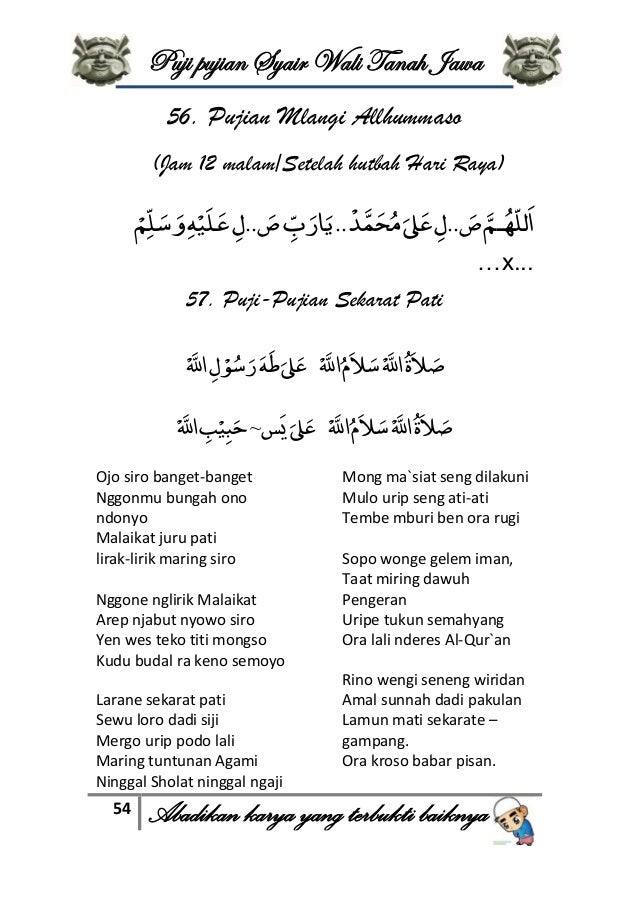 Puji pujian Syair Wali Tanah Jawa
56. Pujian Mlangi Allhummaso
(Jam 12 malam/Setelah hutbah Hari Raya)
اَللّٰهُـمَّ صَ..لِ عَلَىٰ مُحَمَّدْ..يَارَبِّ صَ..لِ عَـلَـيْهِ وَسَـلِّمْ
…x...
57. Puji-Pujian Sekarat Pati
صَلاَةُ اللهْ سَلاَمُ اللهْ عَلَىٰ طَهَ رَسُوْلِ اللهْ
صَلاَةُ اللهْ سَلاَمُ اللهْ عَلَىٰ يَس~حَبِيْبِ اللهْ
Ojo siro banget-banget
Nggonmu bungah ono
ndonyo
Malaikat juru pati
lirak-lirik maring siro
Nggone nglirik Malaikat
Arep njabut nyowo siro
Yen wes teko titi mongso
Kudu budal ra keno semoyo
Larane sekarat pati
Sewu loro dadi siji
Mergo urip podo lali
Maring tuntunan Agami
Ninggal Sholat ninggal ngaji
Mong ma`siat seng dilakuni
Mulo urip seng ati-ati
Tembe mburi ben ora rugi
Sopo wonge gelem iman,
Taat miring dawuh
Pengeran
Uripe tukun semahyang
Ora lali nderes Al-Qur`an
Rino wengi seneng wiridan
Amal sunnah dadi pakulan
Lamun mati sekarate –
gampang.
Ora kroso babar pisan.
54 Abadikan karya yang terbukti baiknya